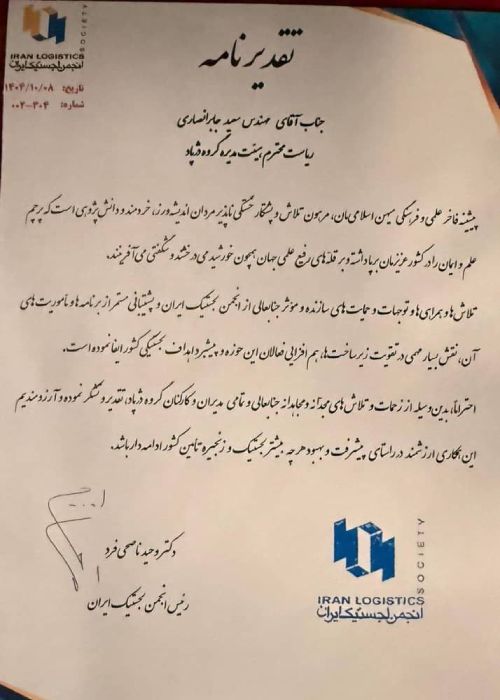 IRAN LOGISTICS
SOCIETY
انجمن لجستیک ایران
تاریخ: ۱۴۰۴/۱۰/۰۸
شماره: ۳۰۴-۰۰۲
تقدیرنامه
جناب آقای مهندس سعید جابرانصاری
ریاست محترم هیئت مدیره گروه دژپاد
پیشینه فاخر علمی و فرهنگی میهن اسلامی‌مان، مرهون تلاش و پشتکار خستگی ناپذیر مردان اندیشه‌ورز، خردمند و دانش پژوهی است که پرچم
علم و ایمان را در کشور عزیزمان برپا داشته و بر قله‌های رفیع علمی جهان همچون خورشید می‌درخشند و شگفتی می‌آفرینند.
تلاش‌ها و همراهی‌ها و توجهات و حمایت‌های سازنده و مؤثر جنابعالی از انجمن لجستیک ایران و پشتیبانی مستمر از برنامه‌ها و مأموریت‌های
آن، نقش بسیار مهمی در تقویت زیرساخت‌ها، هم افزایی فعالان این حوزه و پیشبرد اهداف لجستیکی کشور ایفا نموده است.
احتراماً، بدین وسیله از زحمات و تلاش‌های مجدانه و مجاهدانه جنابعالی و تمامی مدیران و کارکنان گروه دژپاد، تقدیر و تشکر نموده و آرزومندیم
این همکاری ارزشمند در راستای پیشرفت و بهبود هرچه بیشتر لجستیک و زنجیره تأمین کشور ادامه‌دار باشد.
دکتر وحید ناصحی فرد
رئیس انجمن لجستیک ایران
IRAN LOGISTICS
SOCIETY
انجمن لجستیک ایران